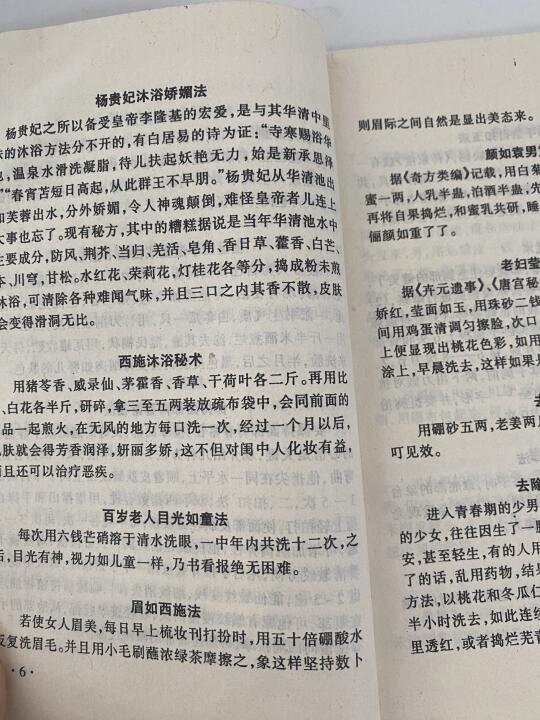 杨贵妃沐浴娇媚法
杨贵妃之所以备受皇帝李隆基的宏爱,是与其华清中里
的沐浴方法分不开的,有白居易的诗为证:“寺寒赐浴华
,温泉水滑洗凝脂,待儿扶起妖艳无力,始是新承恩泽
”“春宵苦短日高起,从此群王不早朋。”杨贵妃从华清池出
芙蓉出水,分外娇媚,令人神魂颠倒,难怪皇帝者儿连上
大事也忘了。现有秘方,其中的糟糕据说是当年华清池水中
主要成分,防风、荆芥、当归、羌活、皂角、香日草、藿香、白芒、
本、川穹,甘松。水红花、荣莉花,灯桂花各等分,捣成粉末煎
沐浴,可清除各种难闻气味,并且三口之内其香不散,皮肤
会变得滑洞无比。
西施沐浴秘术
用猪苓香、威录仙、茅霍香、香草、干荷叶各二斤。再用比
、白花各半斤,研碎,拿三至五两装放疏布袋中,会同前面的
品一起煎火,在无风的地方每口洗一次,经过一个月以后,
肤就会得芳香润泽,妍丽多娇,这不但对闺中人化妆有益,
而且还可以治疗恶疾。
百岁老人目光如童法
每次用六钱芒硝溶于清水洗眼,一中年内共洗十二次,之
后,目光有神,视力如儿童一样,乃书看报绝无困难。
眉如西施法
若使女人眉美,每日早上梳妆刊打扮时,用五十倍硼酸水
反复洗眉毛。并且用小毛刷蘸浓绿茶摩擦之,象这样坚持数卜
·6·
则眉际之间自然是显出美态来。
颜如袁男
据《奇方类编》记载,用白菊
蜜一两,人乳半蛊,泊酒半蛊,先
再将自果捣烂,和蜜乳共研,睡
俪颜如重了了。
老妇莹
据《卉元遗事》、《唐宫秘
娇红,莹面如玉,用珠砂二钱
间用鸡蛋清调匀擦脸,次口
上便显现出桃花色彩,如用
涂上,早晨洗去,这样如果是
去
用硼砂五两,老姜两
叮见效。
去除
进入青春期的少男
的少女,往往因生了一脸
安,甚至轻生,有的人用
了的话,乱用药物,结果
方法,以桃花和冬瓜仁
半小时洗去,如此连续
里透红,或者捣烂芜菁